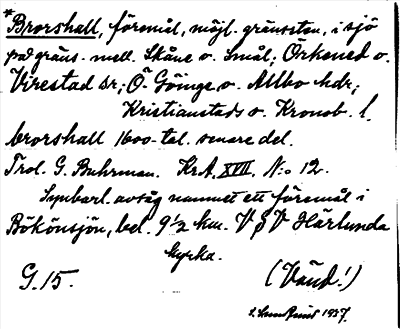 * Brorshall, föremål, möjl. gränssten, i sjö
på gräns. mell. Skåne o. Smål; Örkened o.
Virestad sr; Ö. Göinge o. Allbo hdr;
Kristianstads o. Kronob. l.
brorshall 1600-tal. senare del.
Trol. G. Buhrman. Kr.A. XVII, N:o 12.
Synbarl. avsåg namnet ett föremål i
Bökönsjön, bel. 9 1/2 km. V S V Härlunda
kyrka.
G. 15. (Vänd!)
1937.